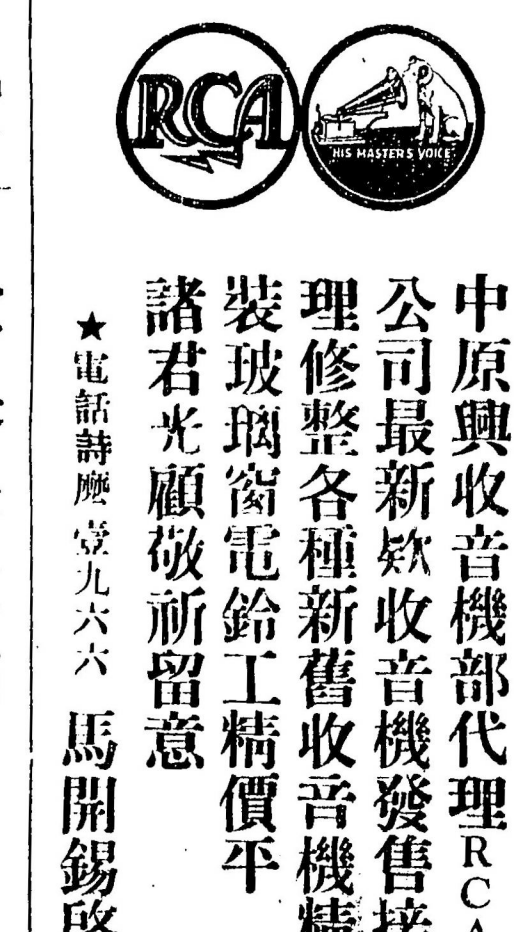 RCA
HIS MASTER'S VOICE
中原興收音機部代理RCA
公司最新欵收音機發售接
理修整各種新舊收音機精
裝玻璃窗電鈴工精價平
諸君光顧敬祈留意
★電話詩 壹九六六 馬開錫啓